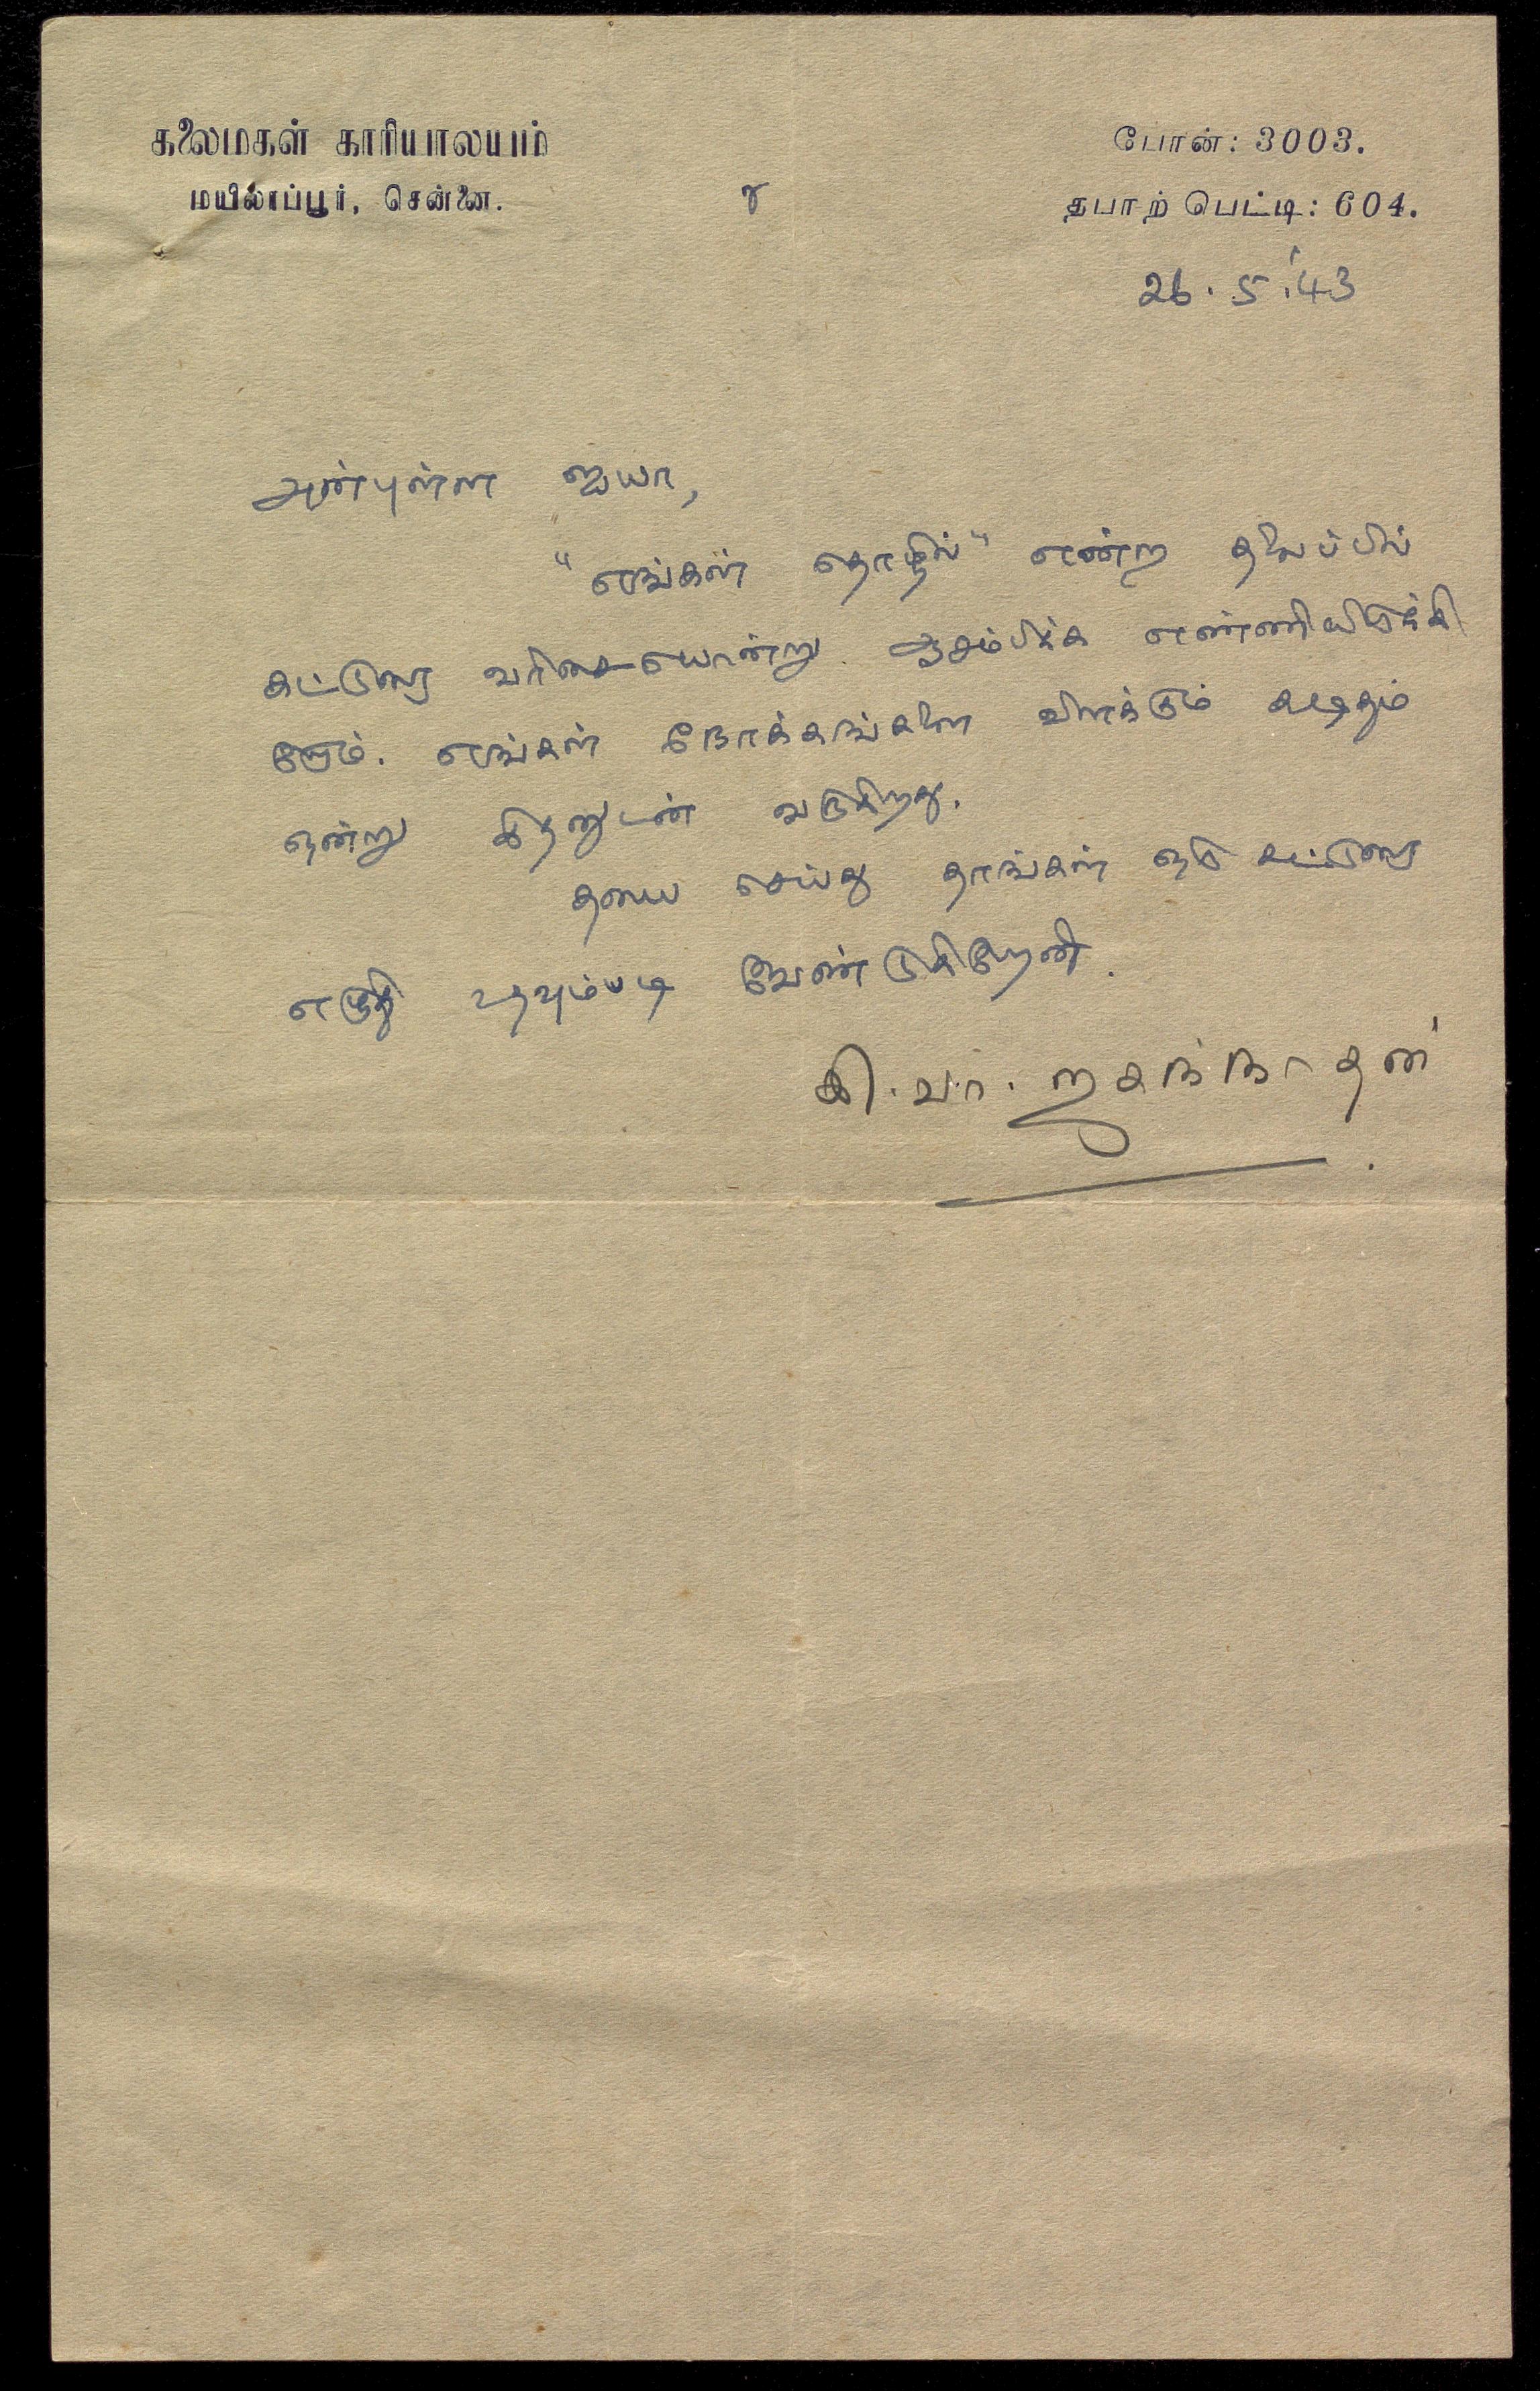 கலைமகள் காரியாலயம்
மயிலாப்பூர், சென்னை.
போன்: 3003.
தபாற் பெட்டி: 604.
26.5.'43
அன்புள்ள ஐயா,
"எங்கள் தொழில்" என்ற தலைப்பில்
கட்டுரை வரிசையொன்று ஆரம்பிக்க எண்ணியிருக்கி
றோம். எங்கள் நோக்கங்களை விளக்கும் கடிதம்
ஒன்று இதனுடன் வருகிறது.
தயை செய்து தாங்கள் ஒரு கட்டுரை
எழுதி உதவும்படி வேண்டுகிறேன்.
கி.வா.ஜகந்நாதன்